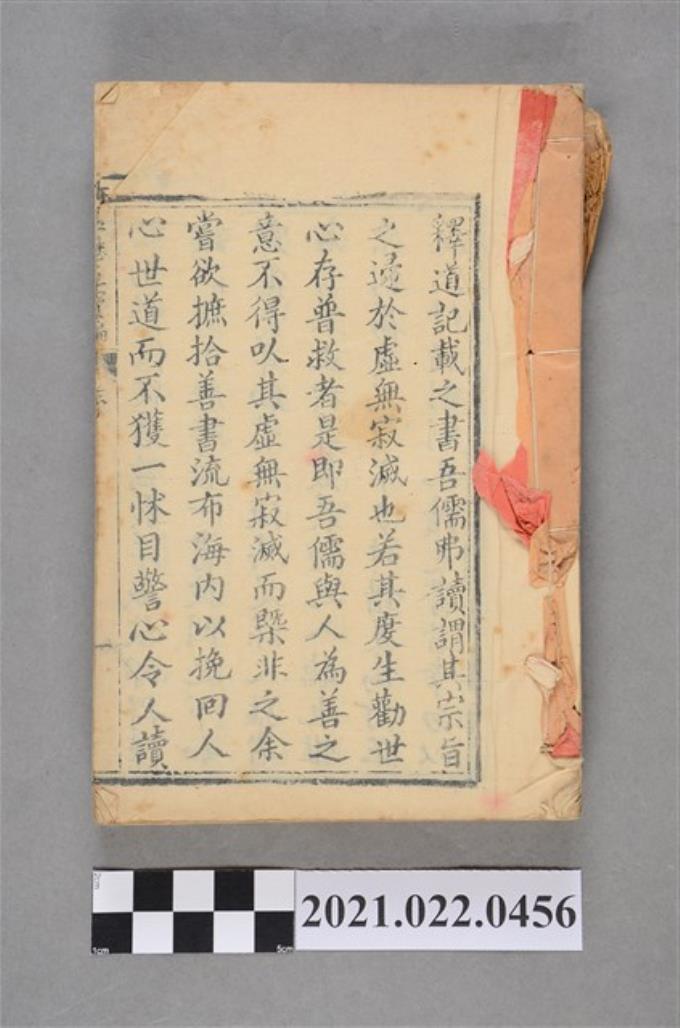 釋道記載之書吾儒弗讀謂其宗旨
之邊於虛無寂滅也若其度生勸世
心存普救者是即吾儒與人為善之
意不得以其虛無寂滅而槩非之余
嘗欲摭拾善書流布海内以挽回人
心世道而不獲一怵目警心令人讀
2cm
1cm
5cm
2021.022.0456